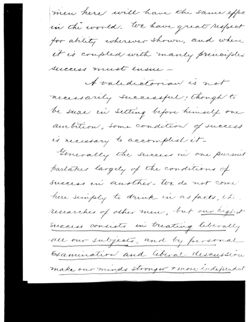 men here will have the same
in the world. We have great respect
for ability wherever shown, and when
it is coupled with manly principles
success must ensue —
A valedictorian is not
necessarily successful; though to
be sure in setting before himself one
ambition, some condition of success
is necessary to accomplish it.
Generally the success in one pursuit
partakes largely of the conditions of
success in another. We do not come
here simply to drink in as facts, the
researches of other men, but our highest
success consists in treating liberally
all our subjects, and by personal
examination and liberal discussion
make our minds stronger & more independent